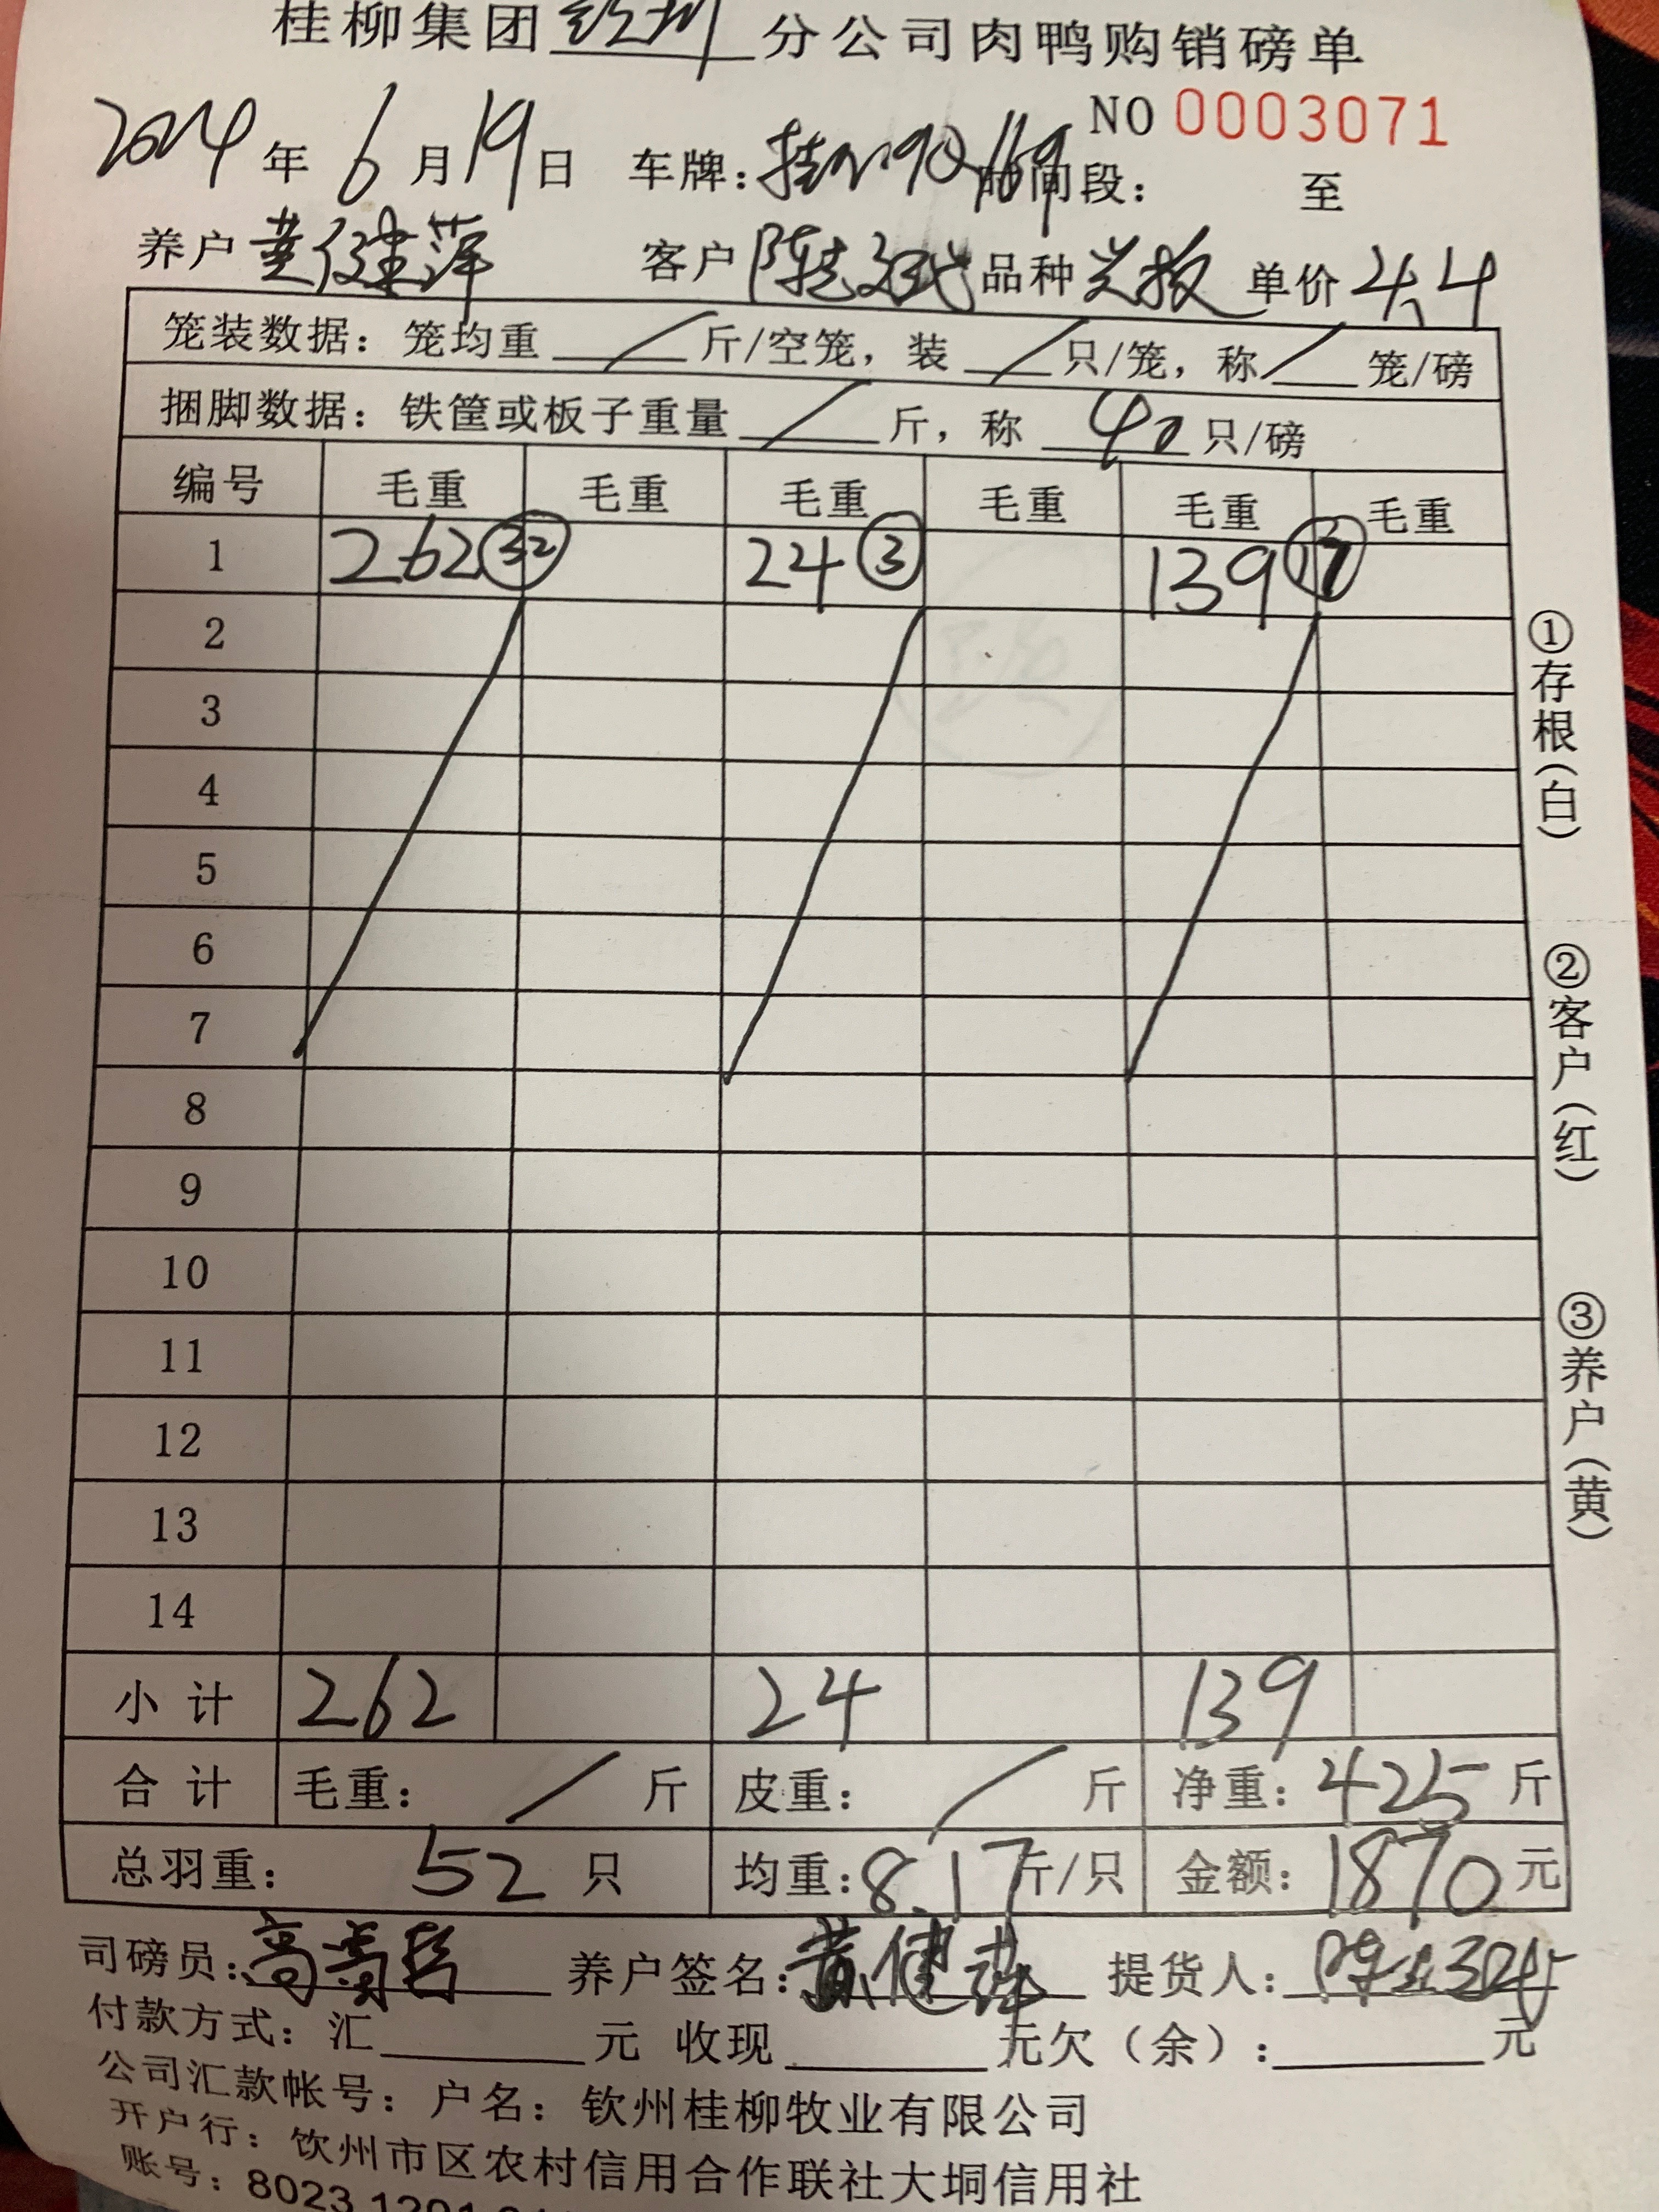 桂柳集团钦州分公司肉鸭购销磅单
NO 0003071
2024年6月19日 车牌: 时间段: 至
养户 黄健萍 客户 陈志斌 品种 单价 4.4
笼装数据: 笼均重 / 斤/空笼, 装 / 只/笼, 称 / 笼/磅
捆脚数据: 铁筐或板子重量 / 斤, 称 40 只/磅
编号 毛重 毛重 毛重 毛重 毛重 毛重
1 262 ㉜ 24 ③ 139 ⑰
2
3
4
5
6
7
8
9
10
11
12
13
14
小计 262 24 139
合计 毛重: / 斤 皮重: / 斤 净重: 425 斤
总羽重: 52 只 均重: 8.17 斤/只 金额: 1870 元
司磅员: 养户签名: 黄健萍 提货人: 陈志斌
付款方式: 汇 元 收现 元欠(余): 元
公司汇款帐号: 户名: 钦州桂柳牧业有限公司
开户行: 钦州市区农村信用合作联社大垌信用社
账号: 8023 1201
①存根(白)
②客户(红)
③养户(黄)